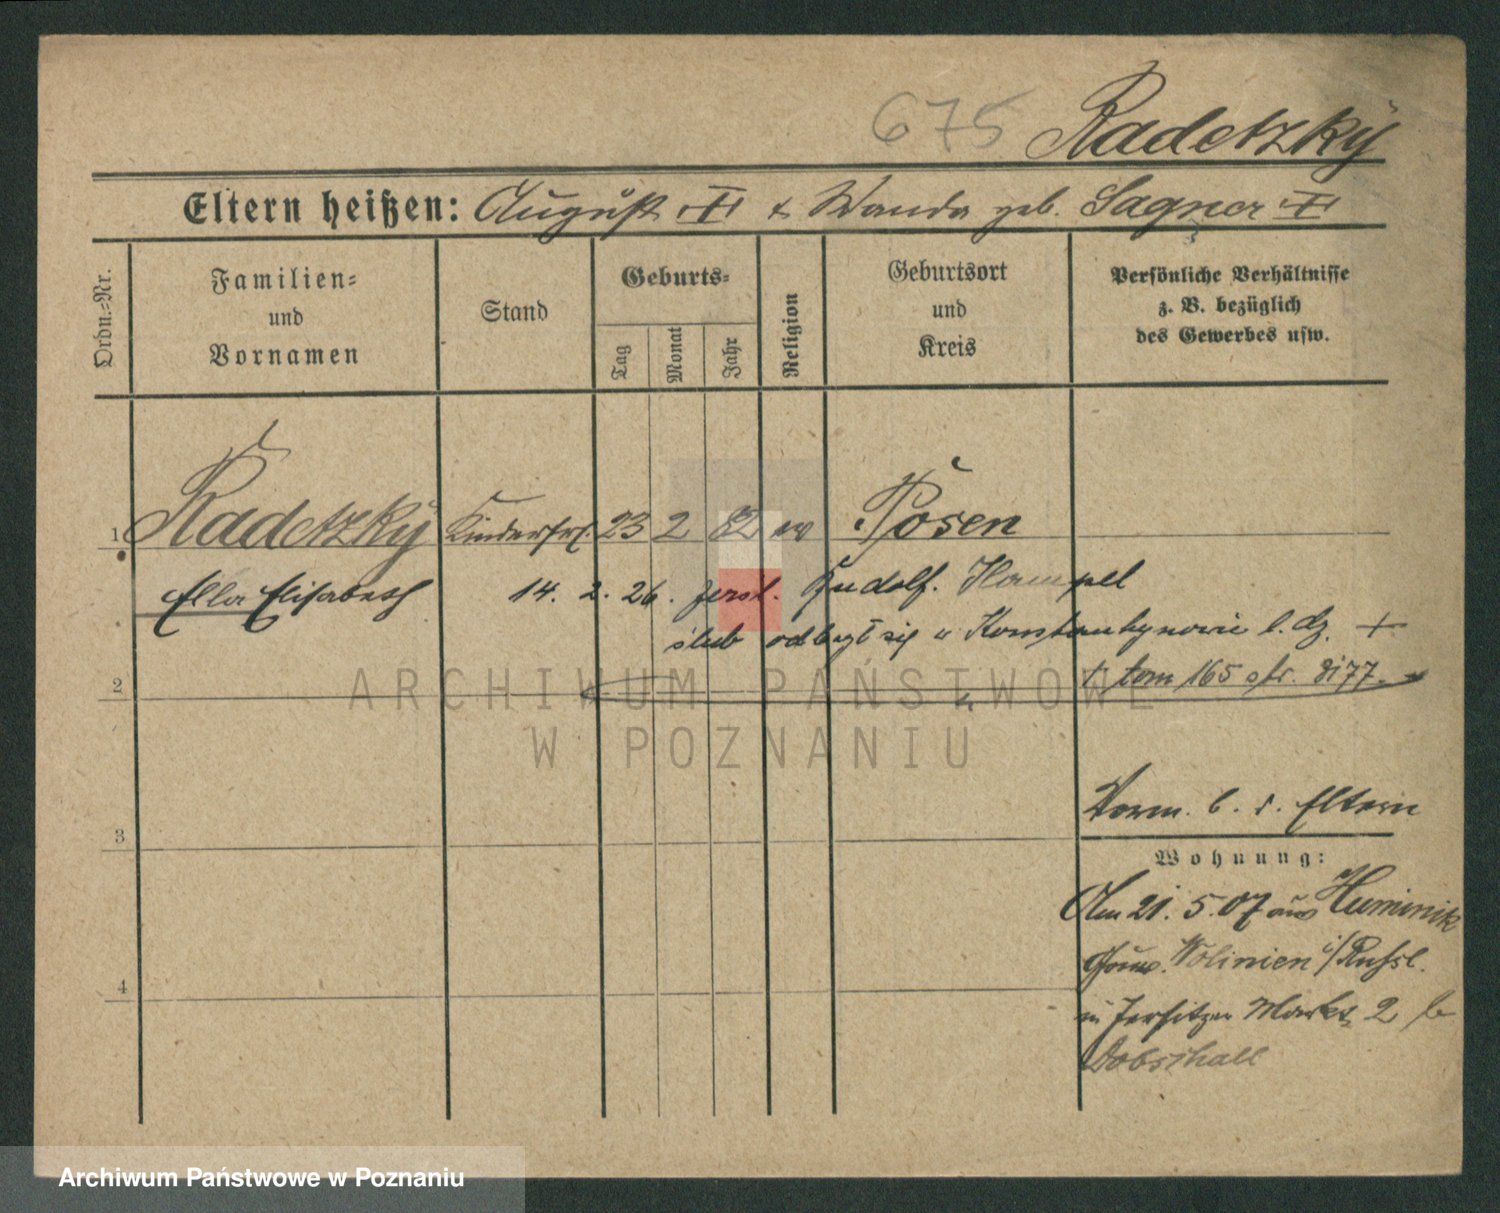 675 Radetzky
Eltern heißen: August † & Wanda geb. Sagner †
Ordn.-Nr.
Familien-
und
Vornamen
Stand
Geburts-
Tag
Monat
Jahr
Religion
Geburtsort
und
Kreis
Persönliche Verhältnisse
z. B. bezüglich
des Gewerbes usw.
1 Radetzky Kinderfrl. 23 2 82 ev Posen
Ella Elisabeth 14. 2. 26. Rudolf. Hampel
ślub odbył się w Konstantynowie
2 tom 165 str.
ARCHIWUM PAŃSTWOWE
W POZNANIU
3 Vorm. b. d. Eltern
Wohnung:
Am 21. 5. 07 aus Huminik
4 Gouv. Wolinien i/Russl.
in Jersitzer Markt 2 b
Dobschall
Archiwum Państwowe w Poznaniu